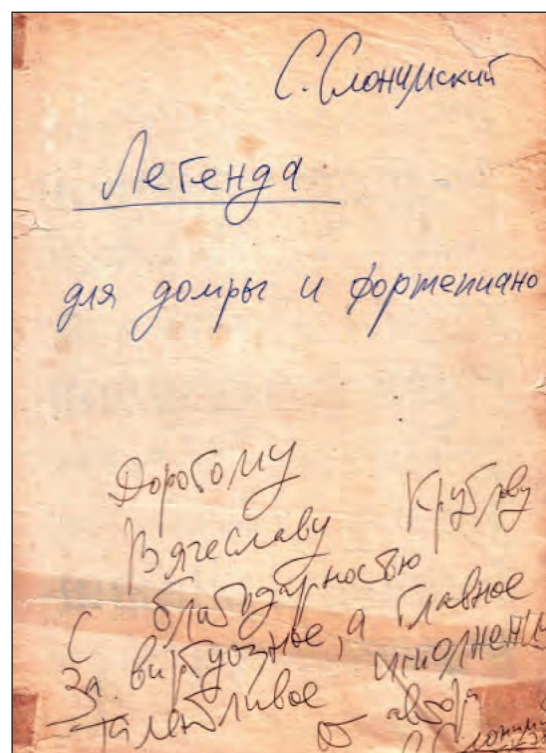 С. Слонимский
Легенда
для домры и фортепиано
Дорогому
Вячеславу Круглову
С благодарностью
За виртуозное, а главное
талантливое исполнение
От автора
С. Слонимский